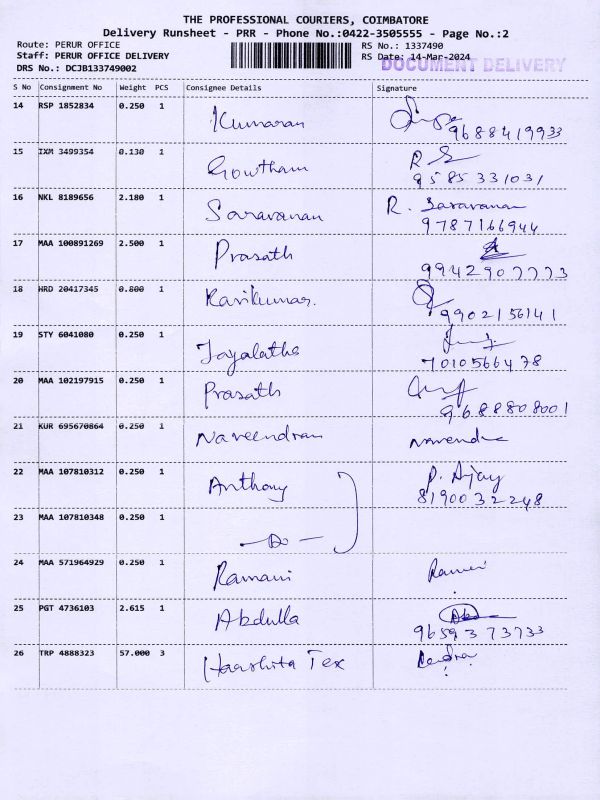 THE PROFESSIONAL COURIERS, COIMBATORE
Delivery Runsheet - PRR - Phone No.:0422-3505555 - Page No.:2
Route: PERUR OFFICE
RS No.: 1337490
Staff: PERUR OFFICE DELIVERY
RS Date: 14-Mar-2024
DOCUMENT DELIVERY
DRS No.: DCJB133749002
S No Consignment No Weight PCS Consignee Details Signature
14 RSP 1852834 0.250 1 Kumaran
9688419933
15 IXM 3499354 0.130 1 Gowtham
9585331031
16 NKL 8189656 2.180 1 Saravanan R. Saravanan
9787166944
17 MAA 100891269 2.500 1 Prasath
9942907773
18 HRD 20417345 0.800 1 Ravikumar.
9902156141
19 STY 6041080 0.250 1 Jayalatha
7010566478
20 MAA 102197915 0.250 1 Prasath
9688808001
21 KUR 695670864 0.250 1 Naveendran
22 MAA 107810312 0.250 1 Anthony P. Ajay
8190032248
23 MAA 107810348 0.250 1 —Do—
24 MAA 571964929 0.250 1 Ramani
25 PGT 4736103 2.615 1 Abdulla
9659373733
26 TRP 4888323 57.000 3 Haarshita Tex